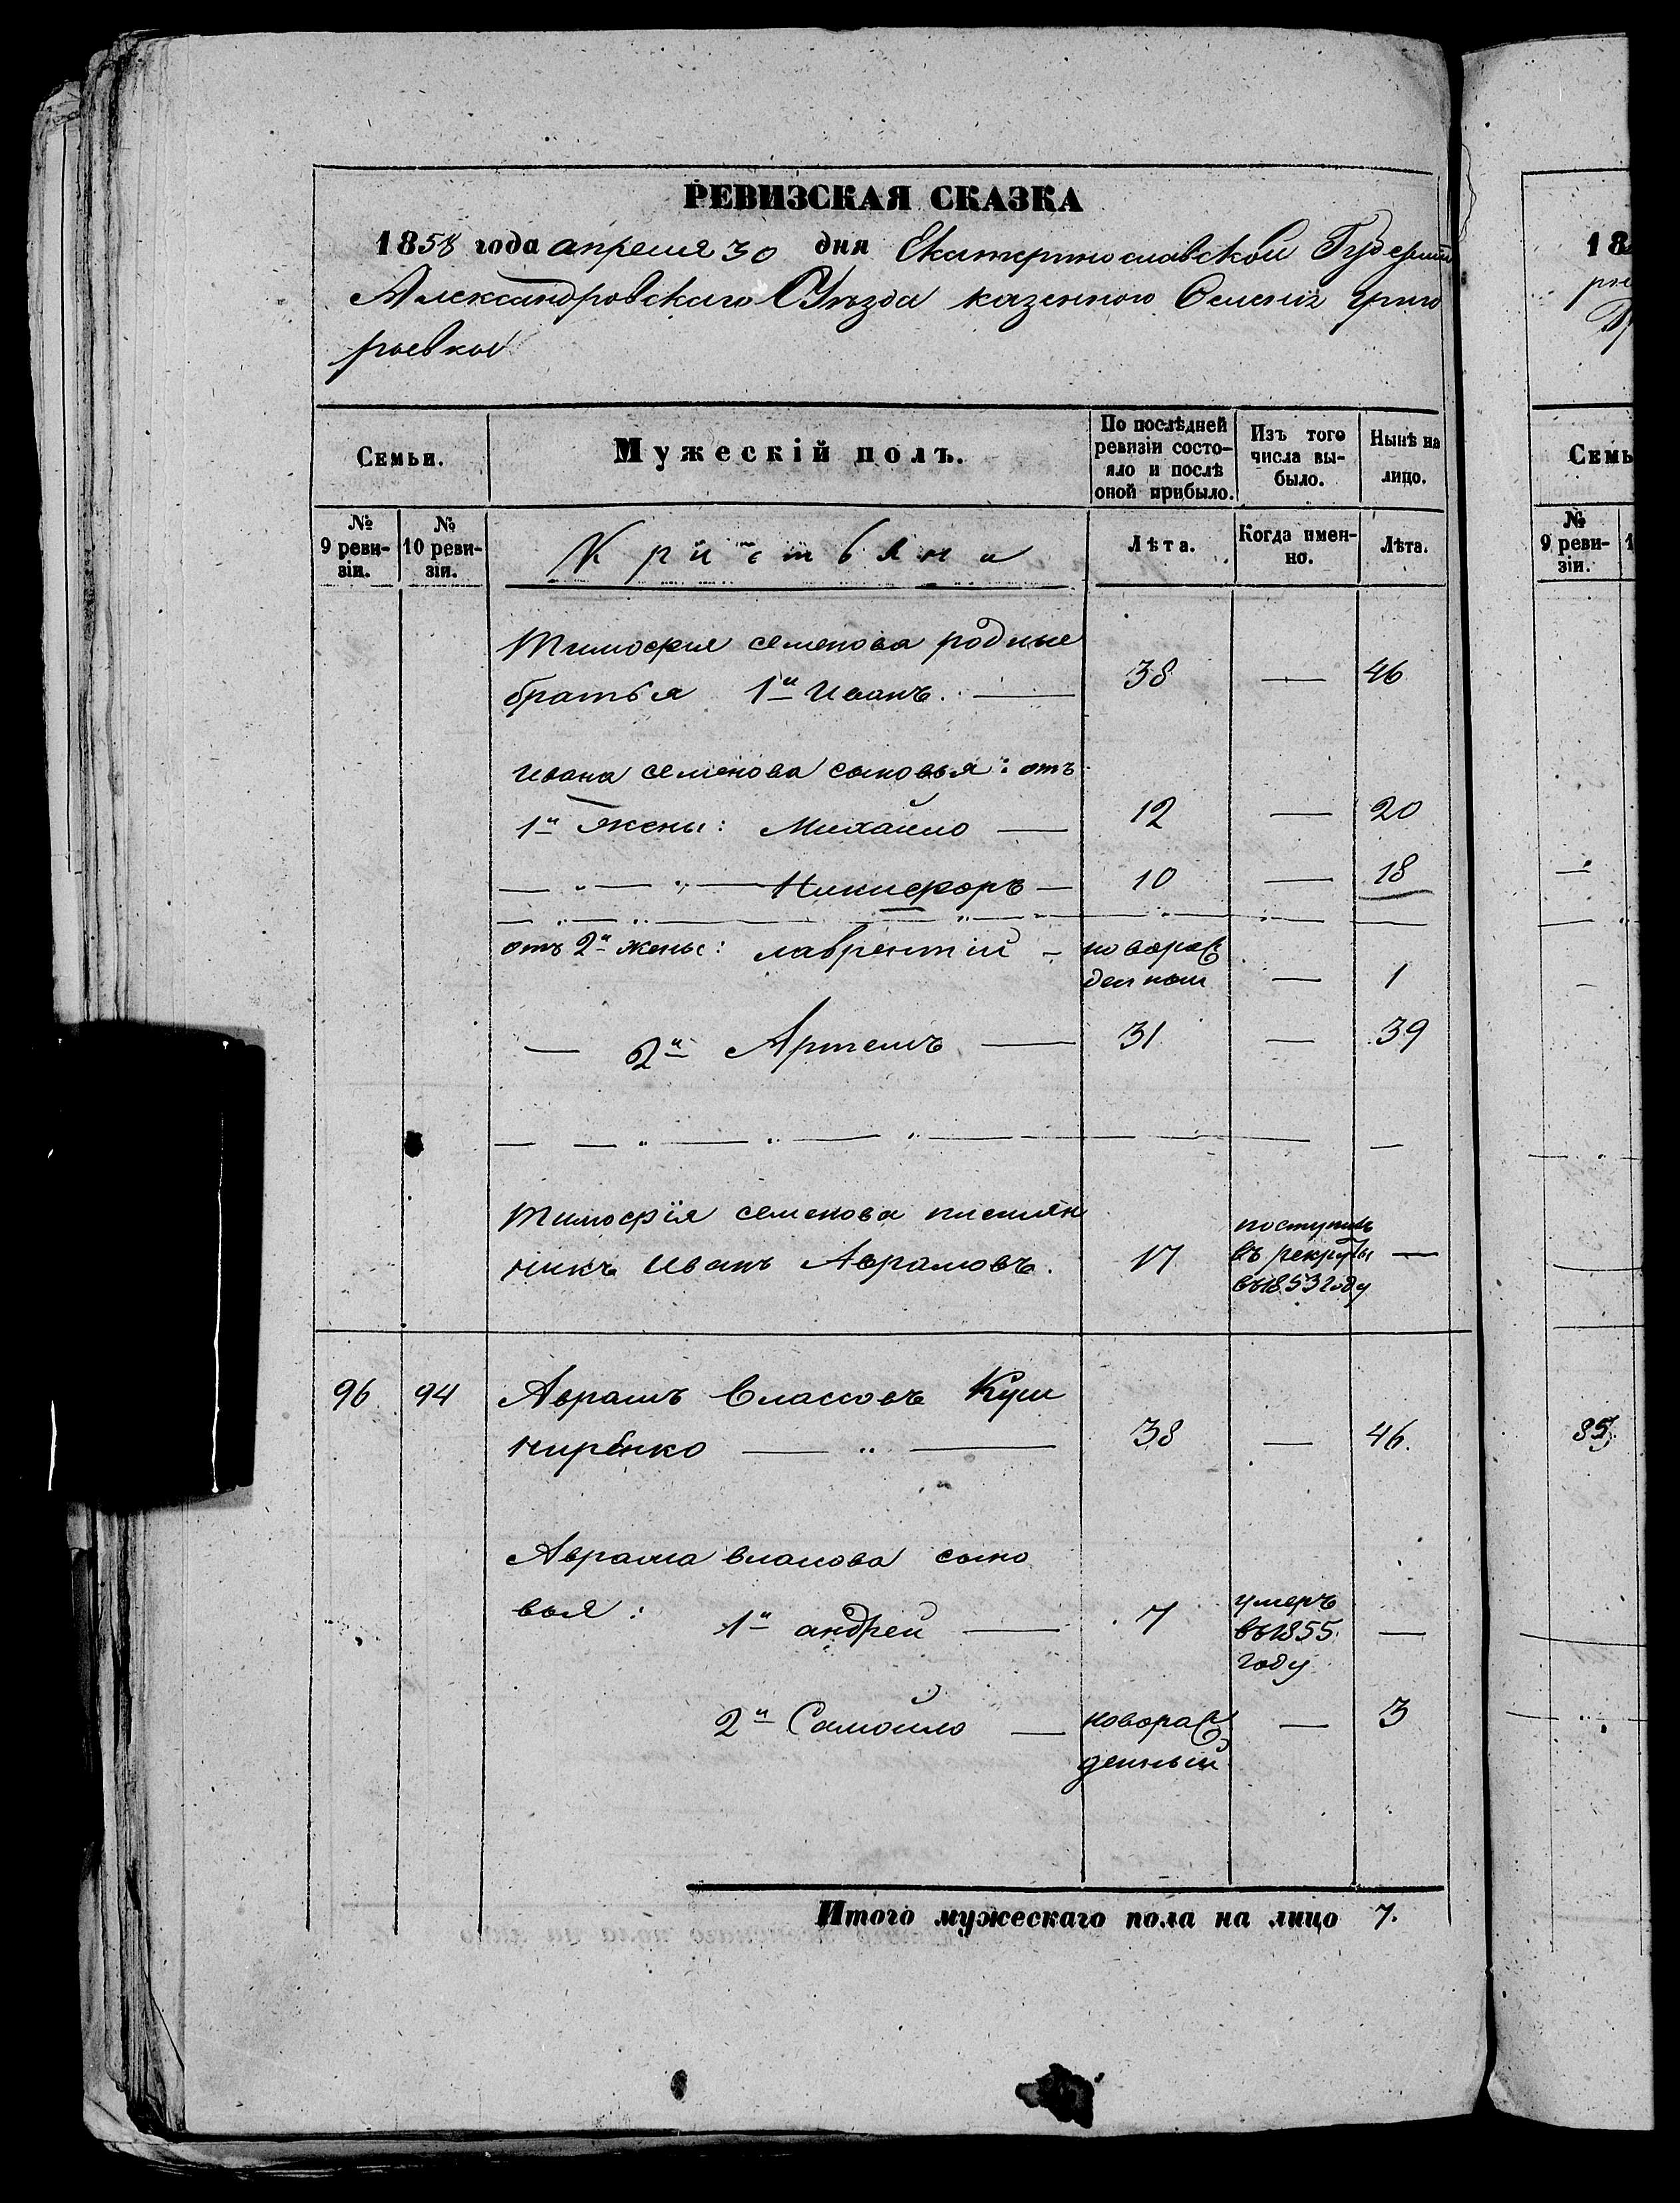 РЕВИЗСКАЯ СКАЗКА
1858 года апреля 30 дня Екатеринославской Губернии
Александровскаго Уѣзда казенного Селения григо
рьевки
Семьи.
Мужескій полъ.
По послѣдней ревизіи состо-
яло и послѣ оной прибыло.
Изъ того числа вы-
было.
Нынѣ на лицо.
№ 9 реви-
зіи.
№ 10 реви-
зіи.
Лѣта.
Когда имен-
но.
Лѣта.
Тимофея семенова родные
братья 1й Иванъ. — 38 — 46
Ивана семенова сыновья: отъ
1й жены: Михайло — 12 — 20
Никифоръ — 10 — 18
отъ 2й жены: лаврентий — новорож
денный — 1
— 2й Артемъ — 31 — 39
Тимофѣя семенова племян
никъ Иванъ Аврамовъ. 17 поступилъ
въ рекруты —
въ 1853 году
96 94 Аврамъ Власовъ Куш
ниренко — " — 38 — 46.
Аврама власова сыно
вья: 1й андрей — 7 умеръ
въ 1855 —
году
2й Самойло — новорож
денный — 3
Итого мужескаго пола на лицо 7.
18
Семь
№
9 реви-
зіи.
85